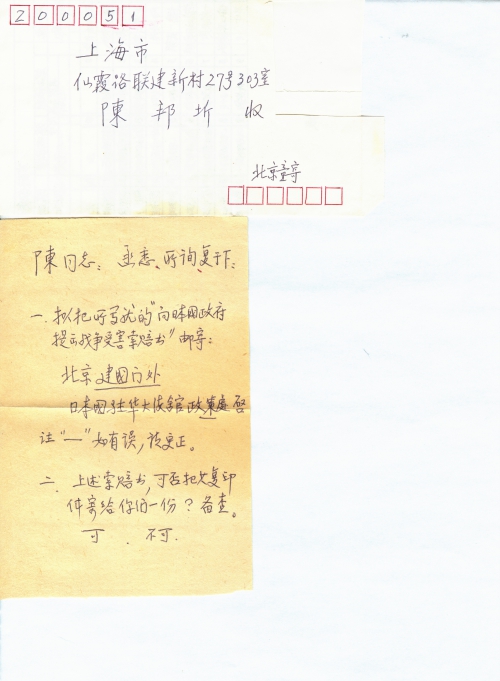 200051
上海市
仙霞路联建新村27号303室
陳邦圻 收
北京童寄
陳同志：函悉、所询复于下：
一. 拟把所写就的“向日本国政府
提出战争受害索赔书”邮寄：
北京建国门外
日本国驻华大使馆政策处 启
注“—”如有误，请更正。
二. 上述索赔书，可否把欠复印
件寄给你们一份？备查。
可 . 不可.